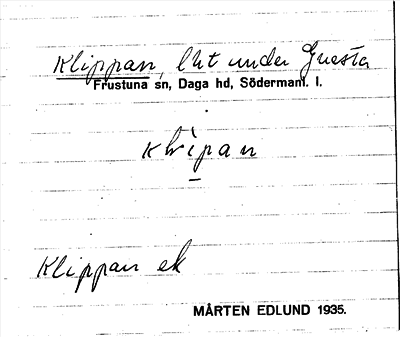 Klippan, lht under Gnesta
Frustuna sn, Daga hd, Söderman. l.
Klippan ek
MÅRTEN EDLUND 1935.